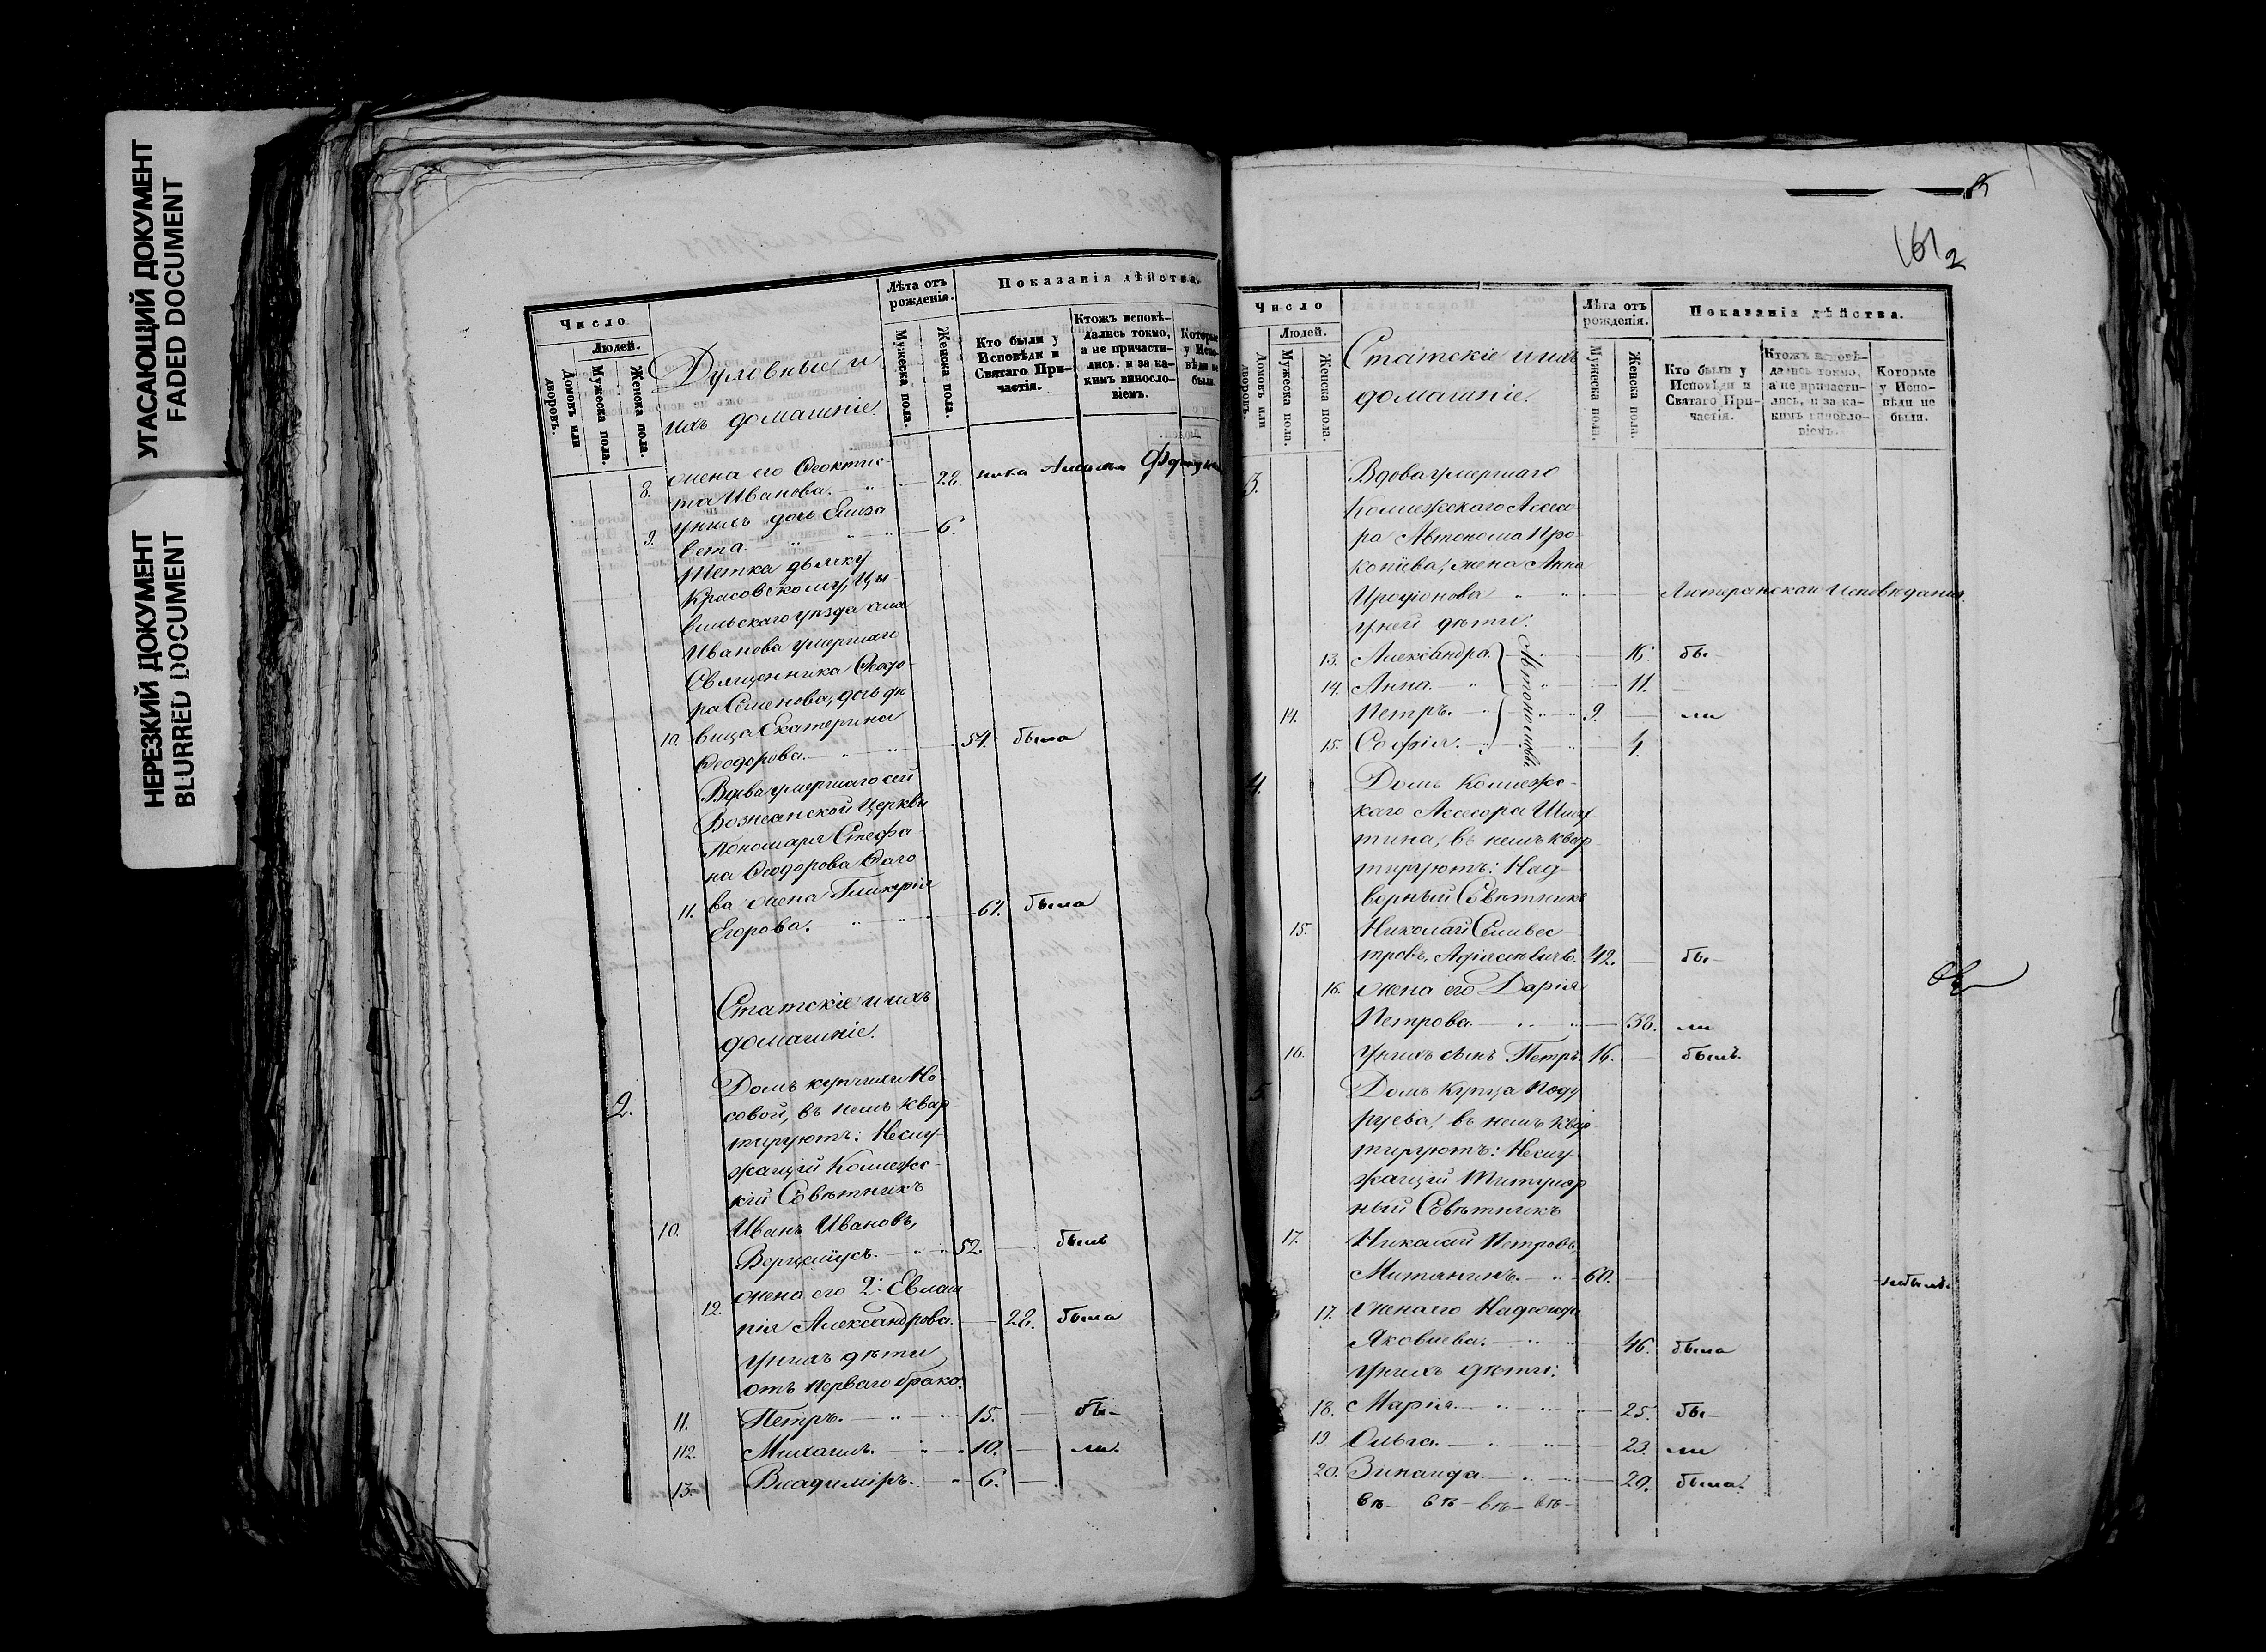 УГАСАЮЩИЙ ДОКУМЕНТ
FADED DOCUMENT
НЕРЕЗКИЙ ДОКУМЕНТ
BLURRED DOCUMENT
Число
Людей.
Домовъ или дворовъ.
Мужеска пола.
Женска пола.
Духовные и
ихъ домашніе.
Лѣта отъ рожденія.
Мужеска пола.
Женска пола.
Показанія дѣйства.
Кто были у Исповѣди и Святаго Причастія.
Ктожъ исповѣдались токмо, а не причастились, и за какимъ винословіемъ.
Которые у Исповѣди не были.
8. жена его Ѳеоктис-
та Иванова. 22.
9. у нихъ дочь Елиза
вета. 6.
Тетка дьячку
Красовскому, Цы-
вильскаго уѣзда села
Иванова умершаго
Священника Ѳеодо-
ра Семенова, дочь дѣ
10. вица Екатерина
Ѳеодорова. 54. была
Вдова умершаго сей
Вознесенской Церкви
Пономаря Стефа
на Ѳеодорова
11. ва жена Гликерія
Егорова. 61. была
Статскіе и ихъ
домашніе.
2. Домъ купчихи Но-
совой, въ немъ квар
тируютъ: Неслу-
жащій Коллежс-
кій Совѣтникъ
10. Иванъ Ивановъ,
52. былъ
жена его 2. Евлам-
12. пія Александрова. 22. была
у нихъ дѣти
отъ перваго брака:
11. Петръ. 15. бы-
12. Михаилъ. 10. ли.
13. Владиміръ. 6.
161
2
Число
Людей.
Домовъ или дворовъ.
Мужеска пола.
Женска пола.
Статскіе и ихъ
домашніе.
Лѣта отъ рожденія.
Мужеска пола.
Женска пола.
Показанія дѣйства.
Кто были у Исповѣди и Святаго Причастія.
Ктожъ исповѣдались токмо, а не причастились, и за какимъ винословіемъ.
Которые у Исповѣди не были.
3. Вдова умершаго
Коллежскаго Ассесо-
ра Автонома Про-
копіева, жена Анна
Иродіонова Лютеранскаго Исповѣданія.
у ней дѣти:
13. Александра. 16. бы-
14. Анна. 11.
14. Петръ. 9. ли
15. Софія. 4.
Автономовы
4. Домъ Коллежс-
каго Ассесора
въ немъ квар
тируютъ: Над-
ворный Совѣтникъ
15. Николай Сельвес-
тровъ, 42. бы-
16. жена его Дарія
Петрова. 38. ли
16. У нихъ сынъ Петръ. 16. былъ.
5. Домъ Купца Поду
руева, въ немъ квар-
тируютъ: Неслу-
жащій Титуляр
ный Совѣтникъ
17. Николай Петровъ,
60. небылъ.
17. жена его Надежда
Яковлева. 46. была
у нихъ дѣти:
18. Марія. 25. бы-
19. Ольга. 23. ли
20. Зинаида. 20. была.